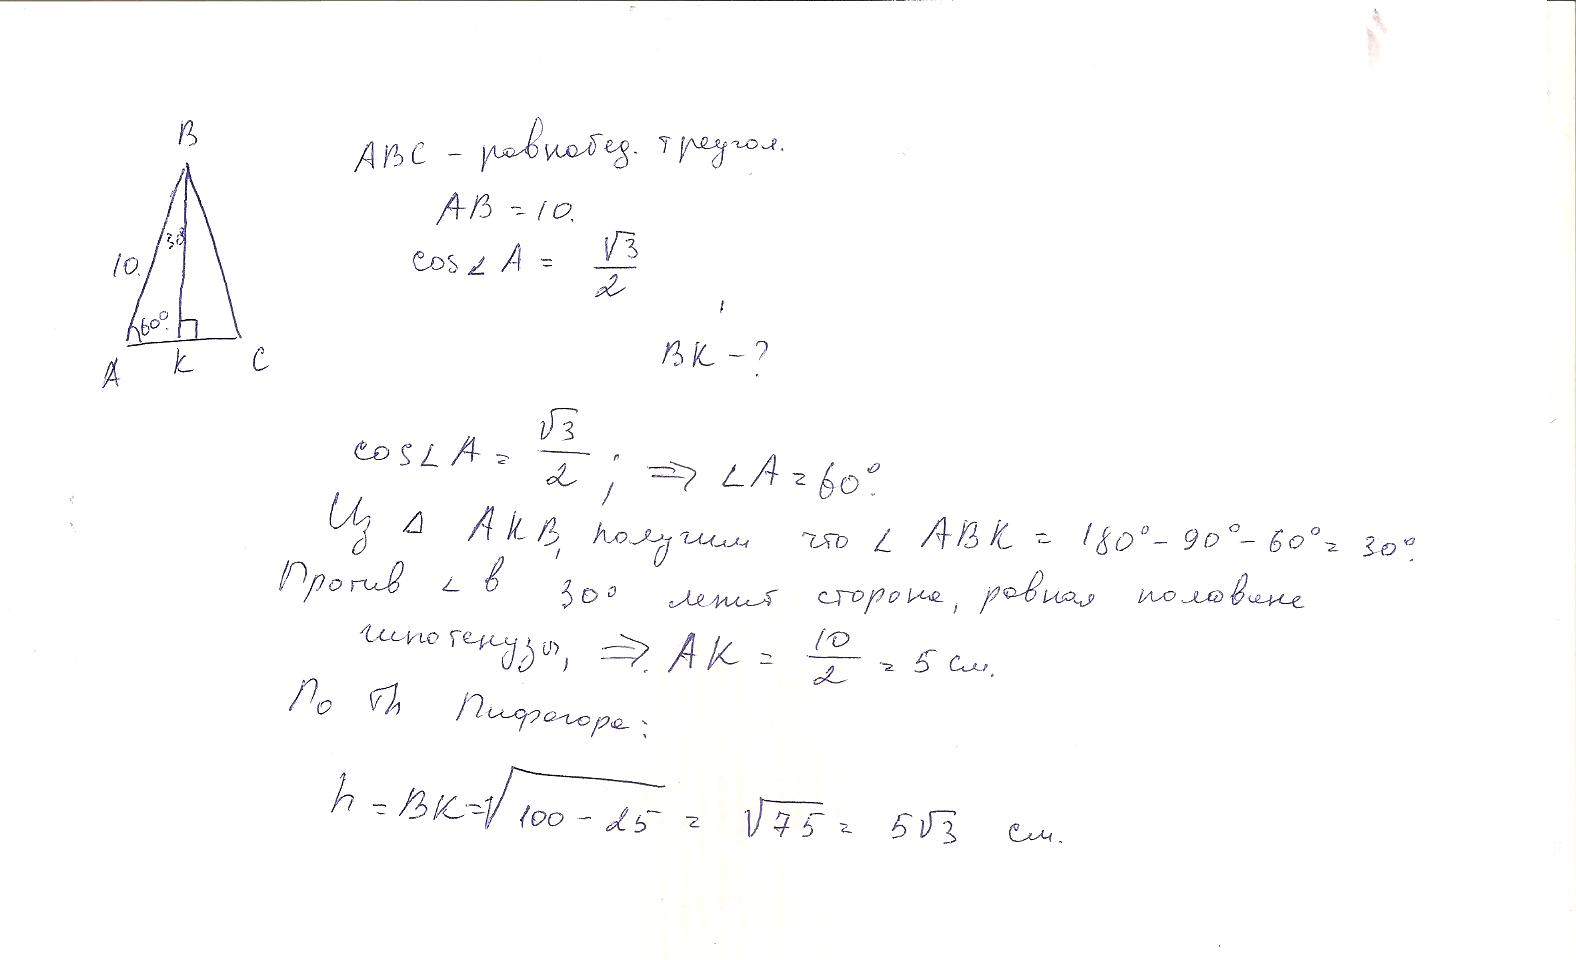 B
ABC - равнобед. треугол.
AB = 10.
cos∠A = √3/2
30°
10.
60°.
A K C
BK - ?
cos∠A = √3/2 ; ⇒ ∠A = 60°.
Из Δ AKB, получим что ∠ABK = 180° - 90° - 60° = 30°.
Против ∠ в 30° лежит сторона, равная половине
гипотенузы, ⇒. AK = 10/2 = 5 см.
По Th Пифагора:
h = BK = √100 - 25 = √75 = 5√3 см.